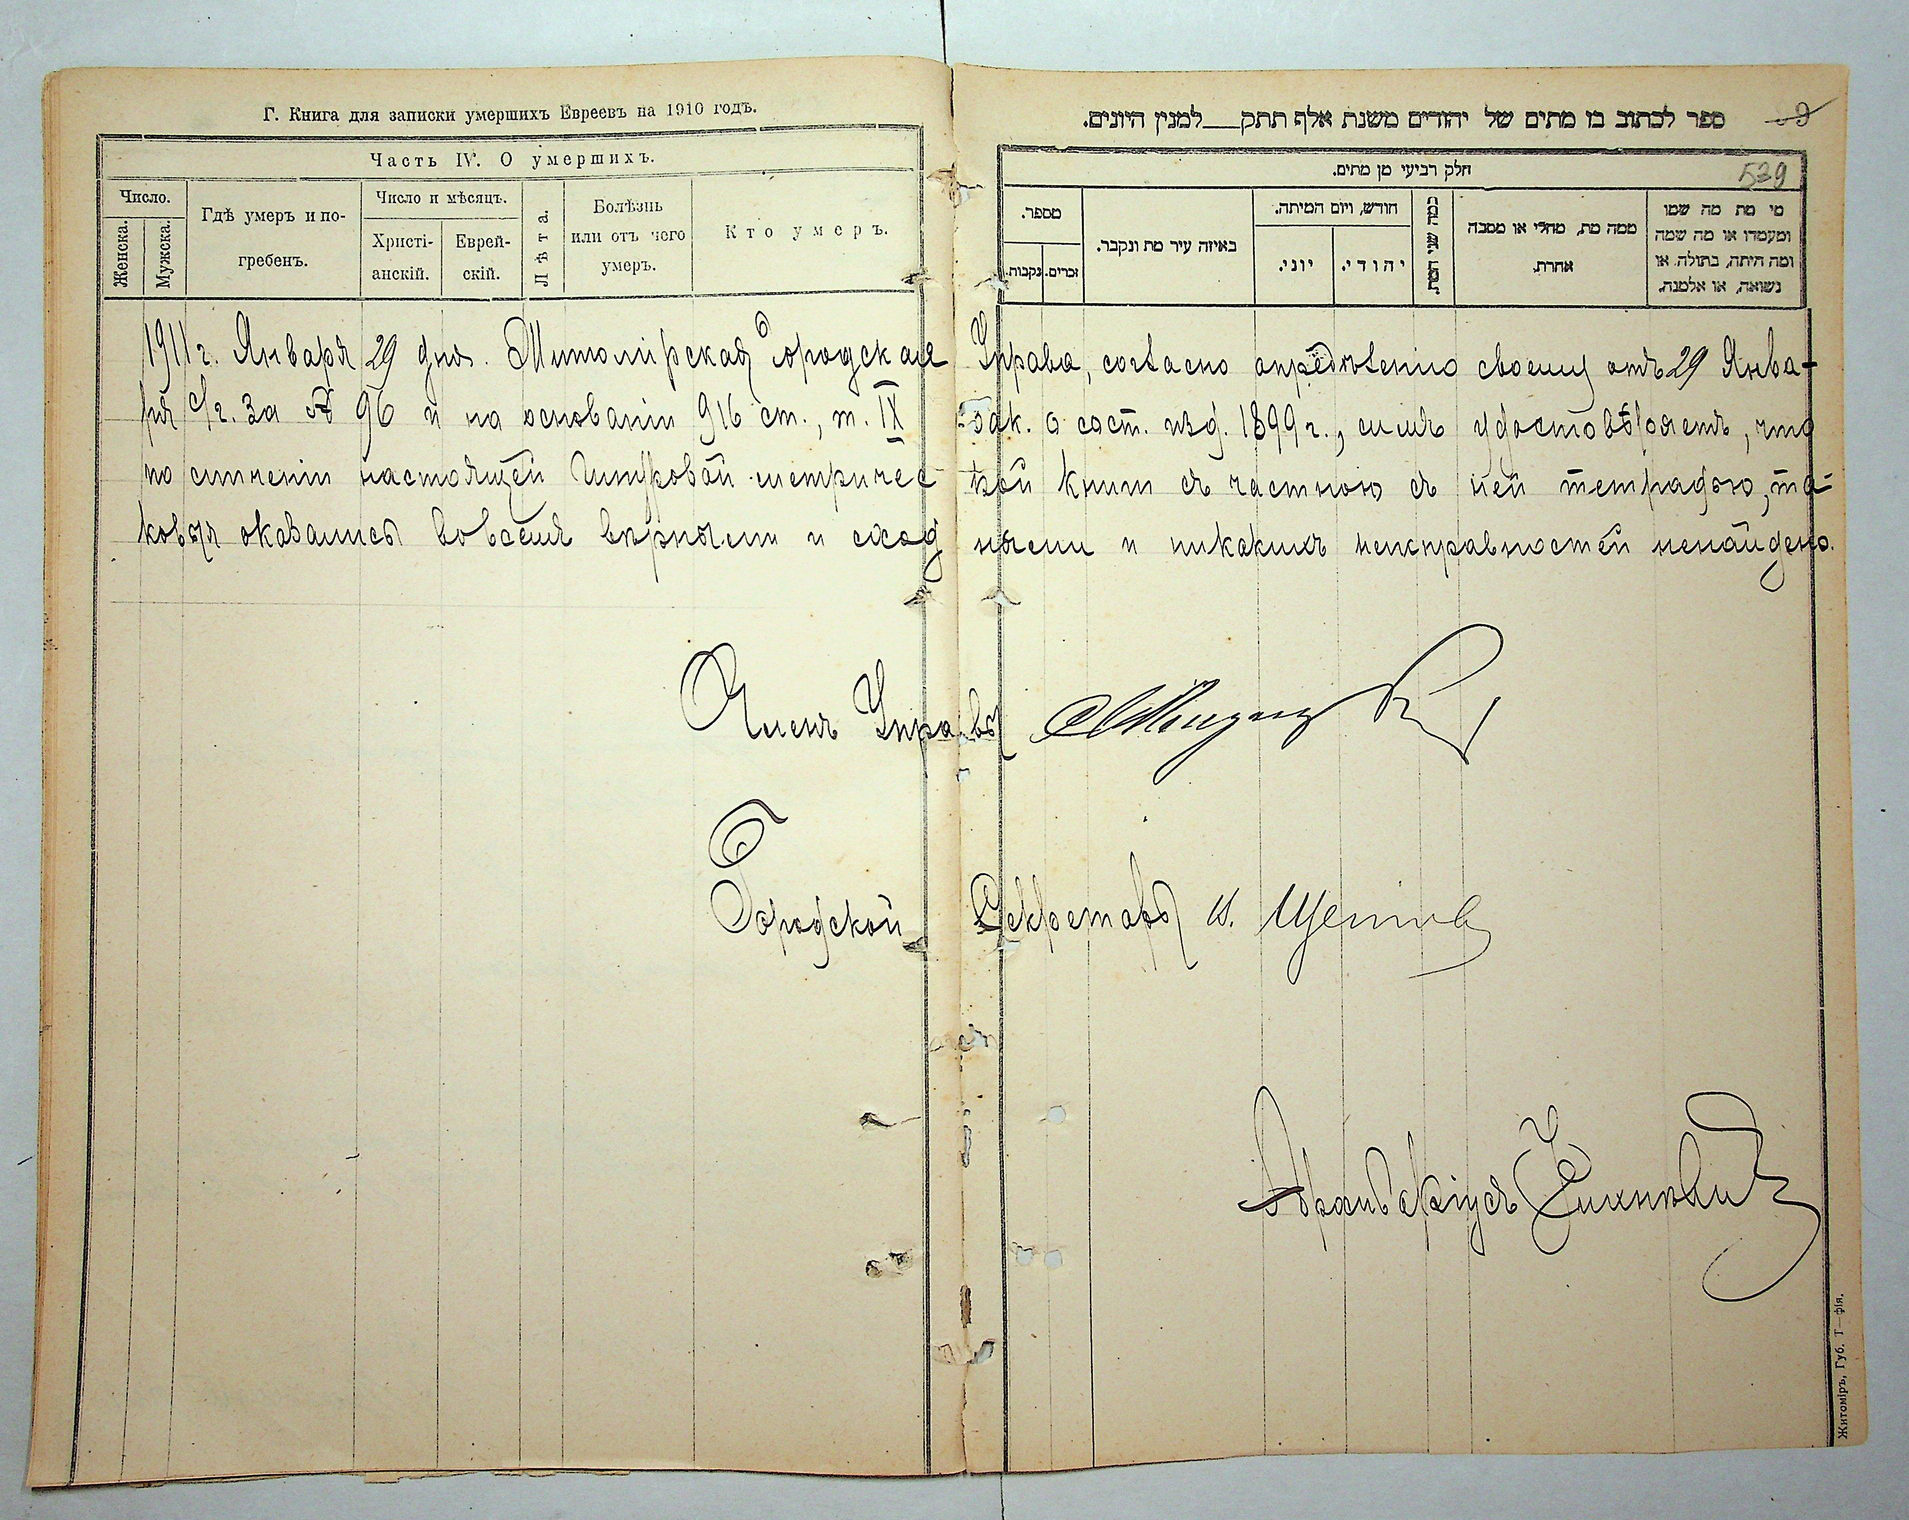 Г. Книга для записки умершихъ Евреевъ на 1910 годъ.
Часть IV. О умершихъ.
Число.
Женска.
Мужска.
Гдѣ умеръ и по-
гребенъ.
Число и мѣсяцъ.
Христі-
анскій.
Еврей-
скій.
Лѣта.
Болѣзнь
или отъ чего
умеръ.
Кто умеръ.
ספר לכתוב בו מתים של יהודים משנת אלף תתק___למנין היונים.
539
חלק רביעי מן מתים.
מספר.
זכרים.
נקבות.
באיזה עיר מת ונקבר.
חודש, ויום המיתה.
יוני.
יהודי.
כמה שני המת.
ממה מת, מחלי או מסבה
אחרת.
מי מת מה שמו
ומעמדו או מה שמה
ומה היתה, בתולה או
נשואה, או אלמנה.
1911 г. Января 29 дня. Житомірская Городская Управа, согласно опредѣленію своему отъ 29 Янва-
ря с/г. за № 96 и на основаніи 916 ст., т. IX зак. о сост. изд. 1899 г., симъ удостовѣряетъ, что
по сличеніи настоящей шнуровой метричес- кой книги съ частною съ ней тетрадью, та-
ковыя оказались во всемъ вѣрными и сход ными и никакихъ неисправностей ненайдено.
Членъ Управы
Городской Секретарь
Житоміръ, Губ. Т—фія.